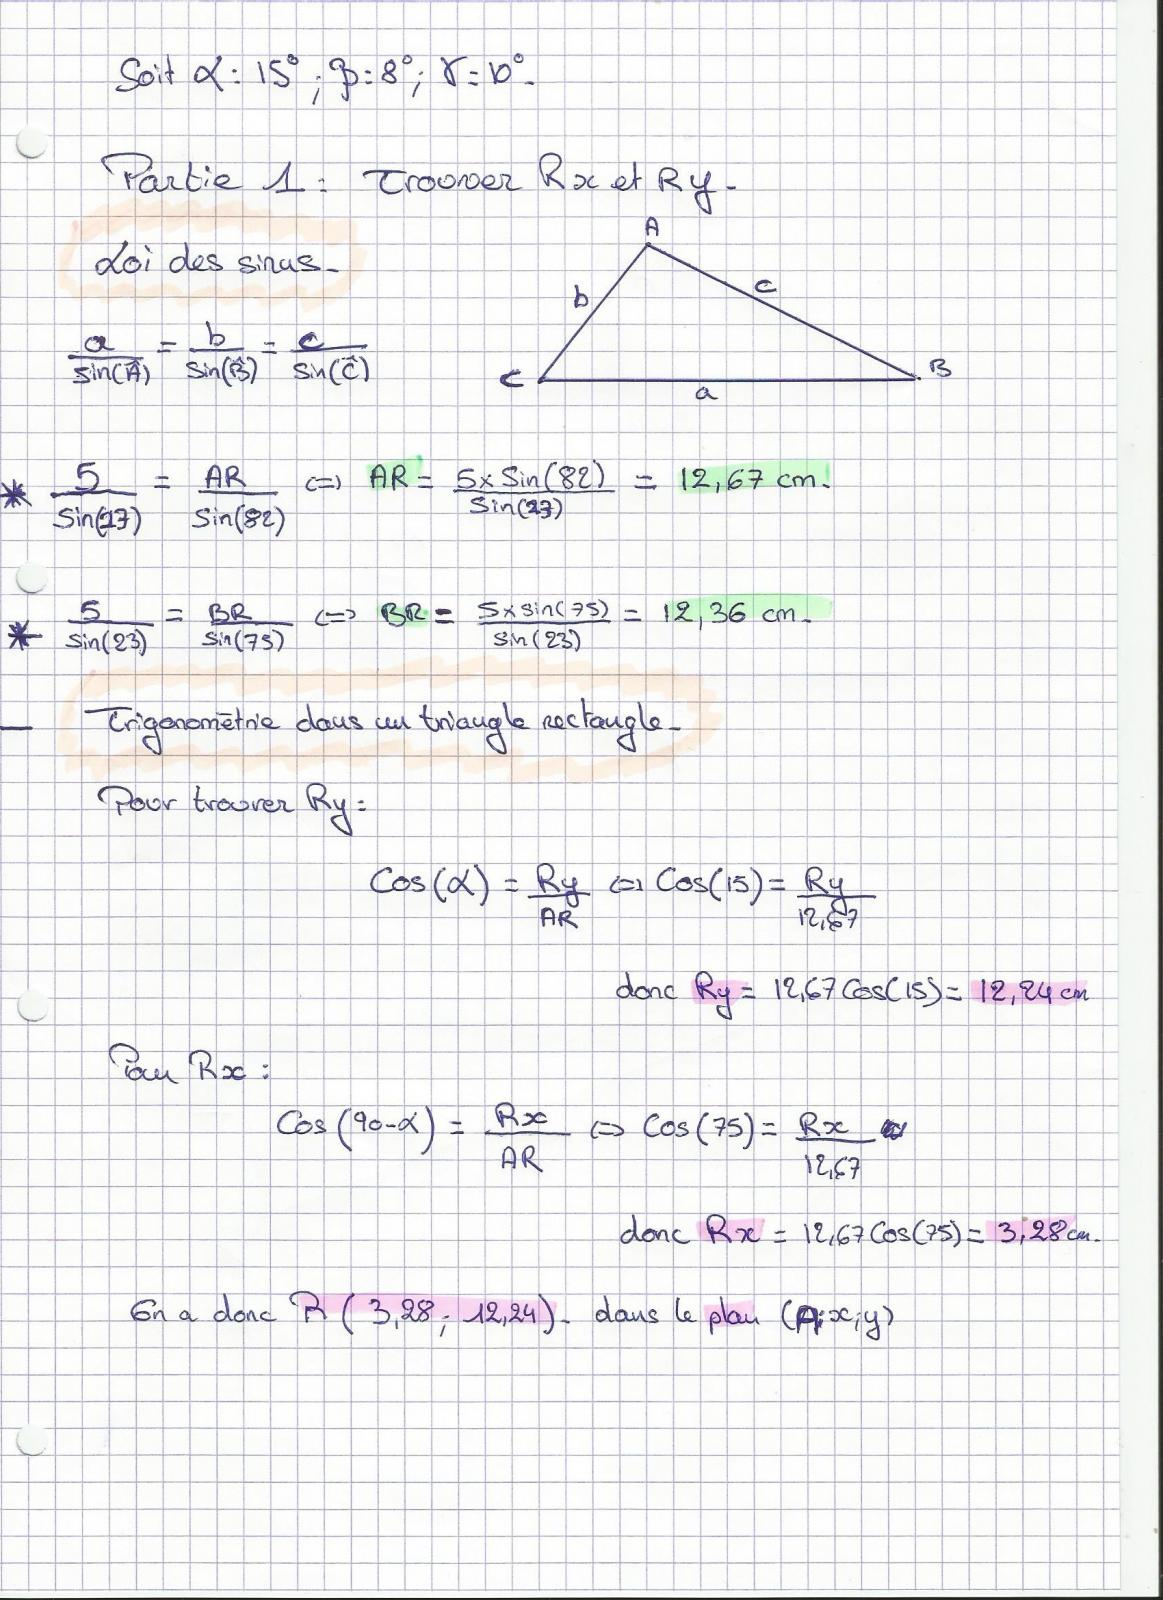 Soit α: 15° ; β: 8° ; γ = 10°.
Partie 1 : Trouver Rx et Ry.
Loi des sinus.
A
b
c
C
B
a
a/sin(Â) = b/sin(B̂) = c/sin(Ĉ)
* 5/Sin(23) = AR/Sin(82) <=> AR = 5x Sin(82)/Sin(23) = 12,67 cm.
* 5/sin(23) = BR/sin(75) <=> BR = 5x sin(75)/sin(23) = 12,36 cm.
— Trigonométrie dans un triangle rectangle.
Pour trouver Ry :
Cos(α) = Ry/AR <=> Cos(15) = Ry/12,67
donc Ry = 12,67 Cos(15) = 12,24 cm
Pour Rx :
Cos(90-α) = Rx/AR <=> Cos(75) = Rx/12,67
donc Rx = 12,67 Cos(75) = 3,28 cm.
On a donc R ( 3,28 ; 12,24 ). dans le plan (A;x;y)